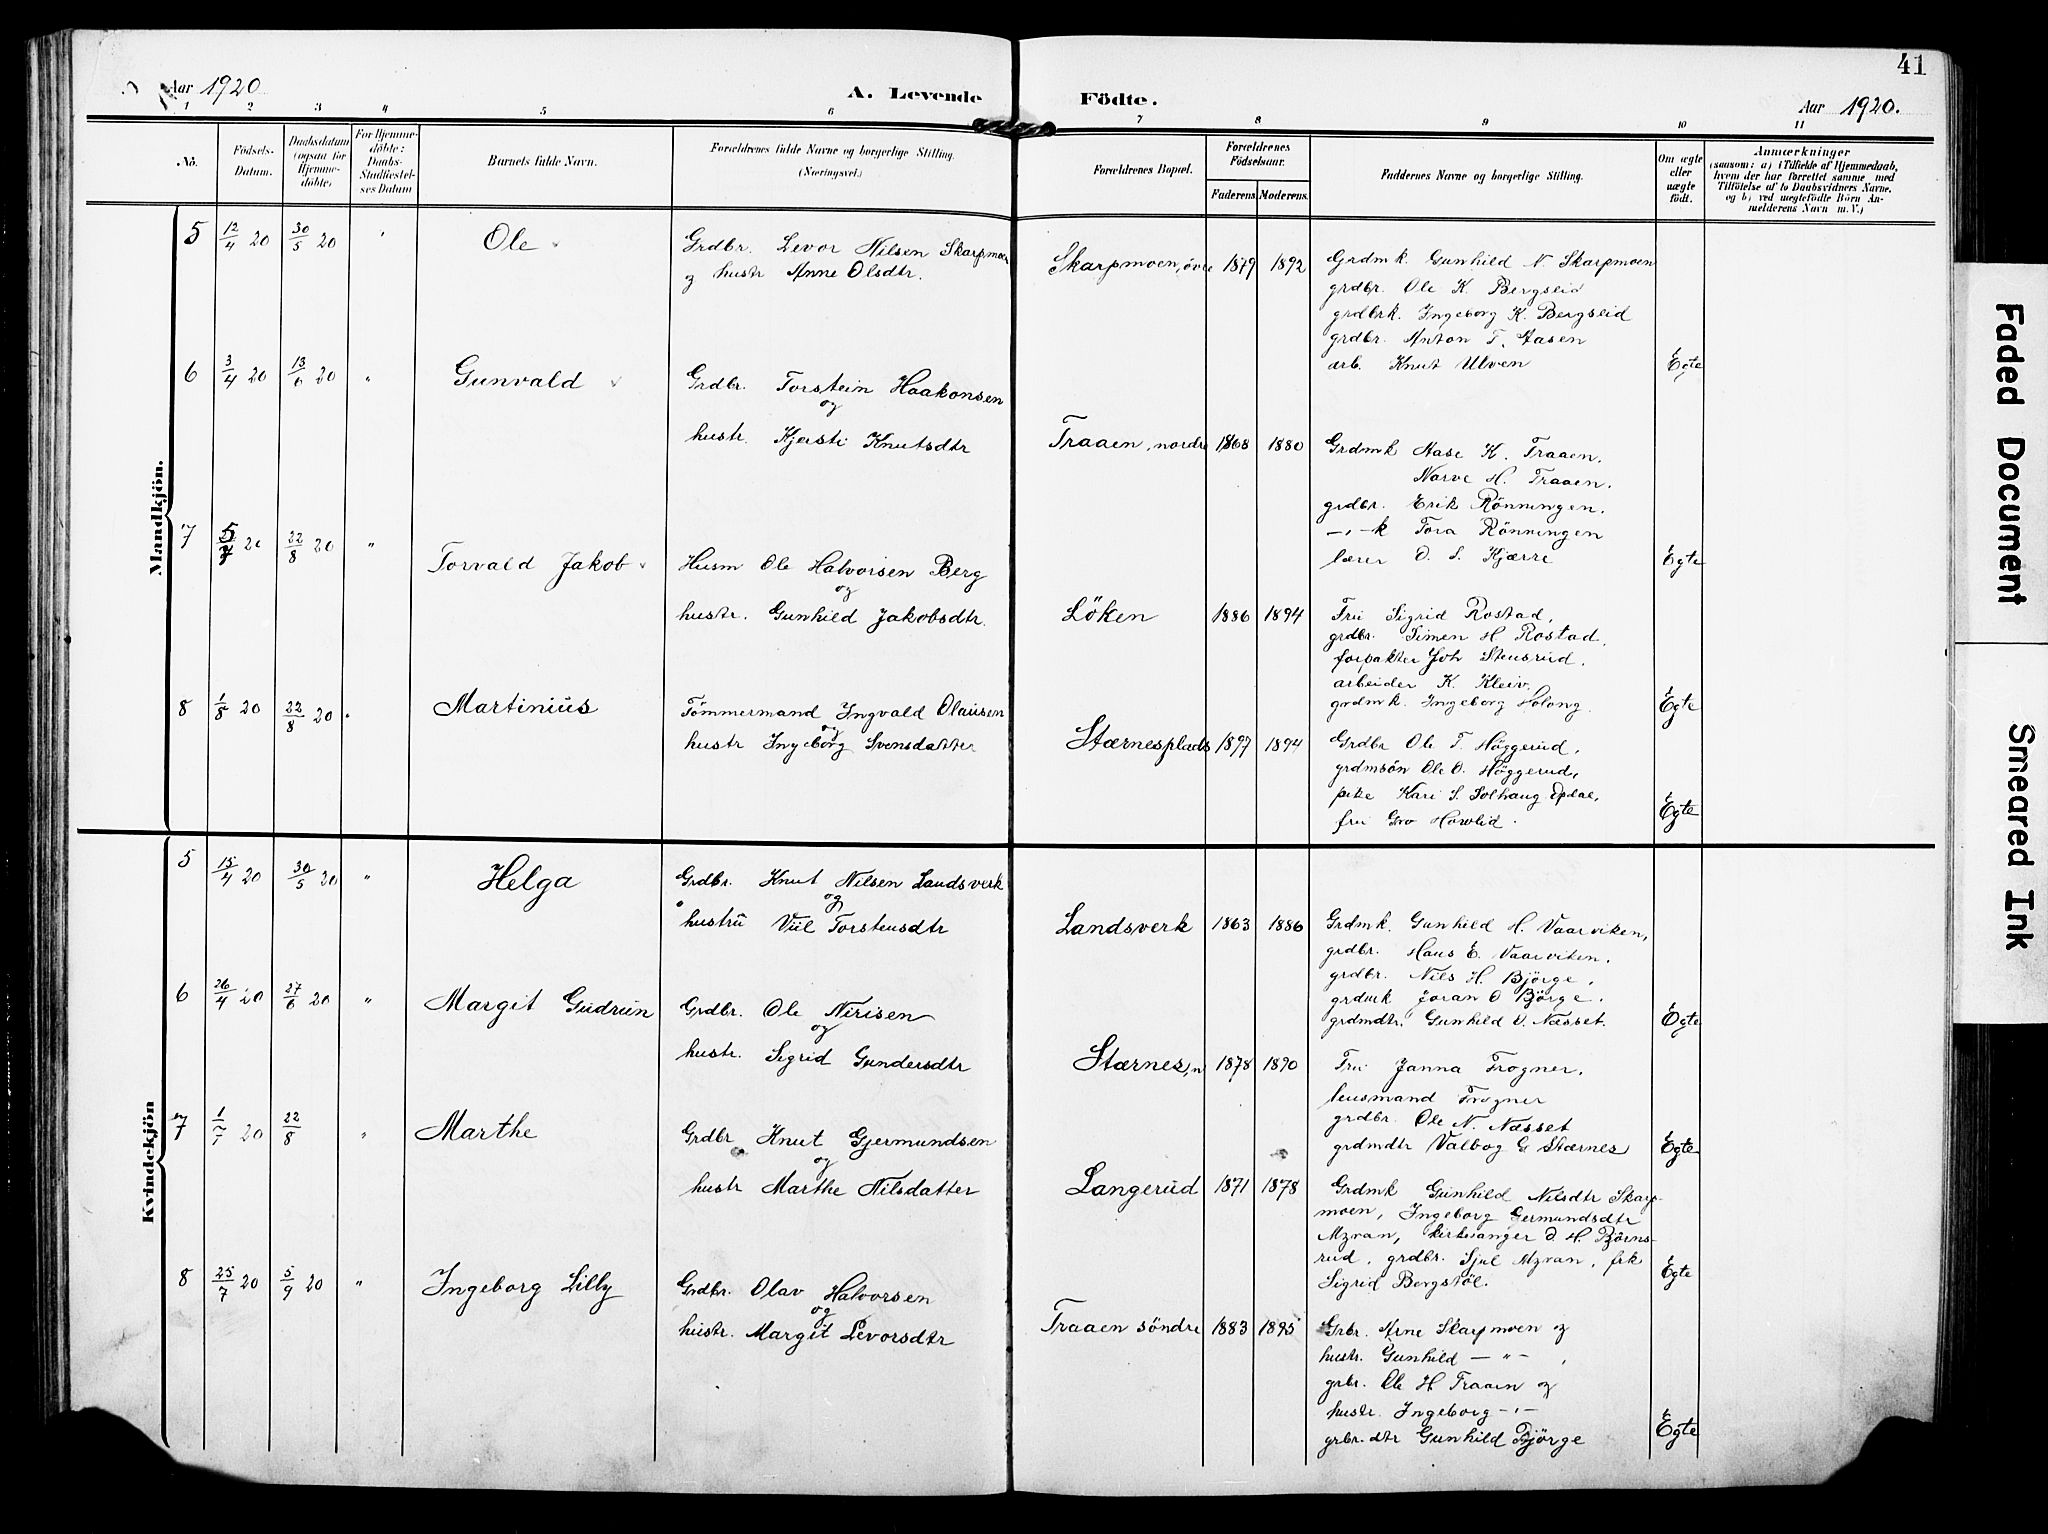 41
Aar 1920
A. Levende Födte.
Aar 1920.
1 2 3 4 5 6 7 8 9 10 11
No.
Födsels-
Datum.
Daabsdatum
(ogsaa for
Hjemme-
döbte)
For Hjemme-
döbte:
Daabs-
Stadfæstel-
ses Datum
Barnets fulde Navn.
Forældrenes fulde Navne og borgerlige Stilling.
(Næringsvei.)
Forældrenes Bopæl.
Forældrenes
Födselsaar.
Faderens Moderens.
Faddernes Navne og borgerlige Stilling.
Om ægte
eller
uægte
födt.
Anmærkninger
(saasom: a) i Tilfælde af Hjemmedaab,
hvem der har forrettet samme med
Tilföielse af to Daabsvidners Navne.
og b) ved uægtefödte Börn An-
melderens Navn m. V.)
Mandkjön.
5 12/4 20 30/5 20 Ole
Grdbr. Levor Nilsen Skarpmoen
og hustr Anne Olsdtr.
Skarpmoen, övre 1879 1892
Grdmk. Gunhild N. Skarpmoen
grdbr. Ole K. Bergseid
grdbrk. Ingeborg K. Bergseid
grdbr. Anton T. Aasen
arb. Knut Ulven
Egte
6 3/4 20 13/6 20 " Gunvald
Grdbr. Torstein Haakonsen
og
hustr. Kjersti Knutsdtr
Traaen, nordre 1868 1880
Grdmk Aase K. Traaen.
Narve H. Traaen.
grdbr. Erik Rönningen.
—"—k Tora Rönningen
lærer O. S. Kjærre
Egte
7 20 22/8 20 " Torvald Jakob
Husm Ole Halvorsen Berg
og
hustr. Gunhild Jakobsdtr.
Löken 1886 1894
Fru Sigrid Rostad,
grdbr. Simen H Rostad,
forpakter Joh Stensrud.
arbeider K. Kleiv.
grdmk. Ingeborg Holong.
Egte
8 1/8 20 22/8 20 " Martinius
Tömmermand Ingvald Olausen
og
hustr Ingeborg Svensdatter
Stærnesplads 1897 1894
Grdbr Ole T. Höggerud,
grdmsön Ole O. Höggerud,
pike Kari S. Solhaug Opdal,
fru Gro Hovlid.
Egte
Kvindekjön
5 15/4 20 30/5 20 " Helga
Grdbr. Knut Nilsen Landsverk
og
hustru Viil Torstensdtr
Landsverk 1863 1886
Grdmk. Gunhild H. Vaarviken,
grdbr. Hans E. Vaarviken.
grdbr. Nils H. Björge,
grdmk Joran O Björge.
grdmdtr. Gunhild O. Næsset.
Egte
6 26/4 20 27/6 20 " Margit Gudrun
Grdbr. Ole Nirisen
og
hustr. Sigrid Gundersdtr
Stærnes, n 1878 1890
Fru Janna Frogner.
lensmand Frogner
grdbr. Ole N. Næsset
grdmdtr Valbog G Stærnes
Egte
7 1/7 20 22/8 " Marthe
Grdbr Knut Gjermundsen
og
hustr Marthe Nilsdatter
Langerud 1871 1878
Grdmk Gunhild Nilsdtr Skarp-
moen, Ingeborg Germundsdtr
Myran, kirkesanger O H. Björns-
rud, grdbr. Sjul Myran, frk
Sigrid Bergstöl.
Egte
8 25/7 20 5/9 20 " Ingeborg Lilly
Grdbr. Olav Halvorsen
og
hustr. Margit Levorsdtr
Traaen söndre 1883 1895
Grbr. Arne Skarpmoen og
hustr. Gunhild — " — ,
grbr. Ole H Traaen og
hustr. Ingeborg —"—
grbr. dtr Gunhild Björge
Egte
Faded Document
Smeared Ink